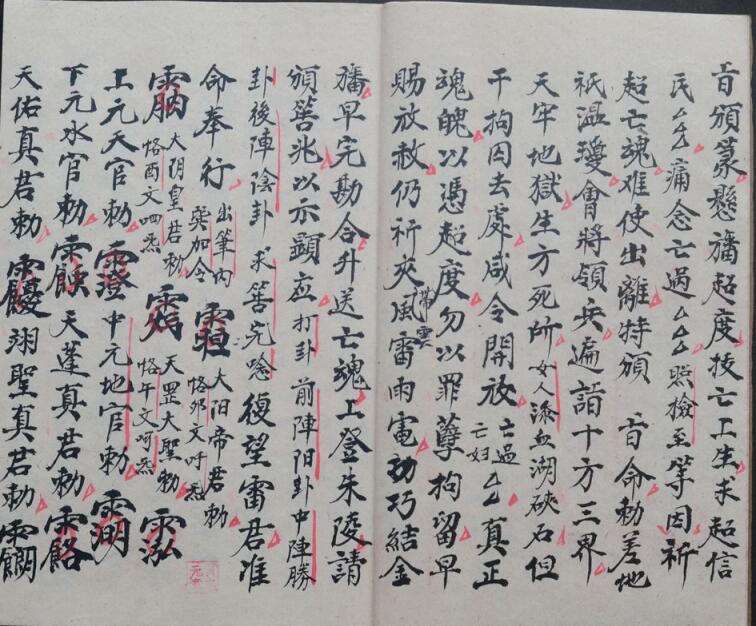 旨頒篆懸旛超度拔亡上生求超信
民厶厶痛念亡過厶厶照檢至等因祈
超亡魂难使出離特頒 旨命勅差地
祇温瓊會將領兵遍詣十方三界
天牢地獄生方死所女人添血湖硤石但
干拘囚去處咸令開放亡過亡妇厶真正
魂魄以憑超度勿以罪孽拘留早
賜放赦仍祈夾風带雲雷雨電劾巧結金
旛早完勘合升送亡魂上登朱陵請
頒筶兆以示顕应打卦前陣阳卦中陣勝
卦後陣陰卦求筶完唸復望雷君准
命奉行出筆内 大阳帝君勅
大阴皇君勅 天罡大聖勅
上元天官勅 中元地官勅
下元水官勅 天蓬真君勅
天佑真君勅 翊聖真君勅